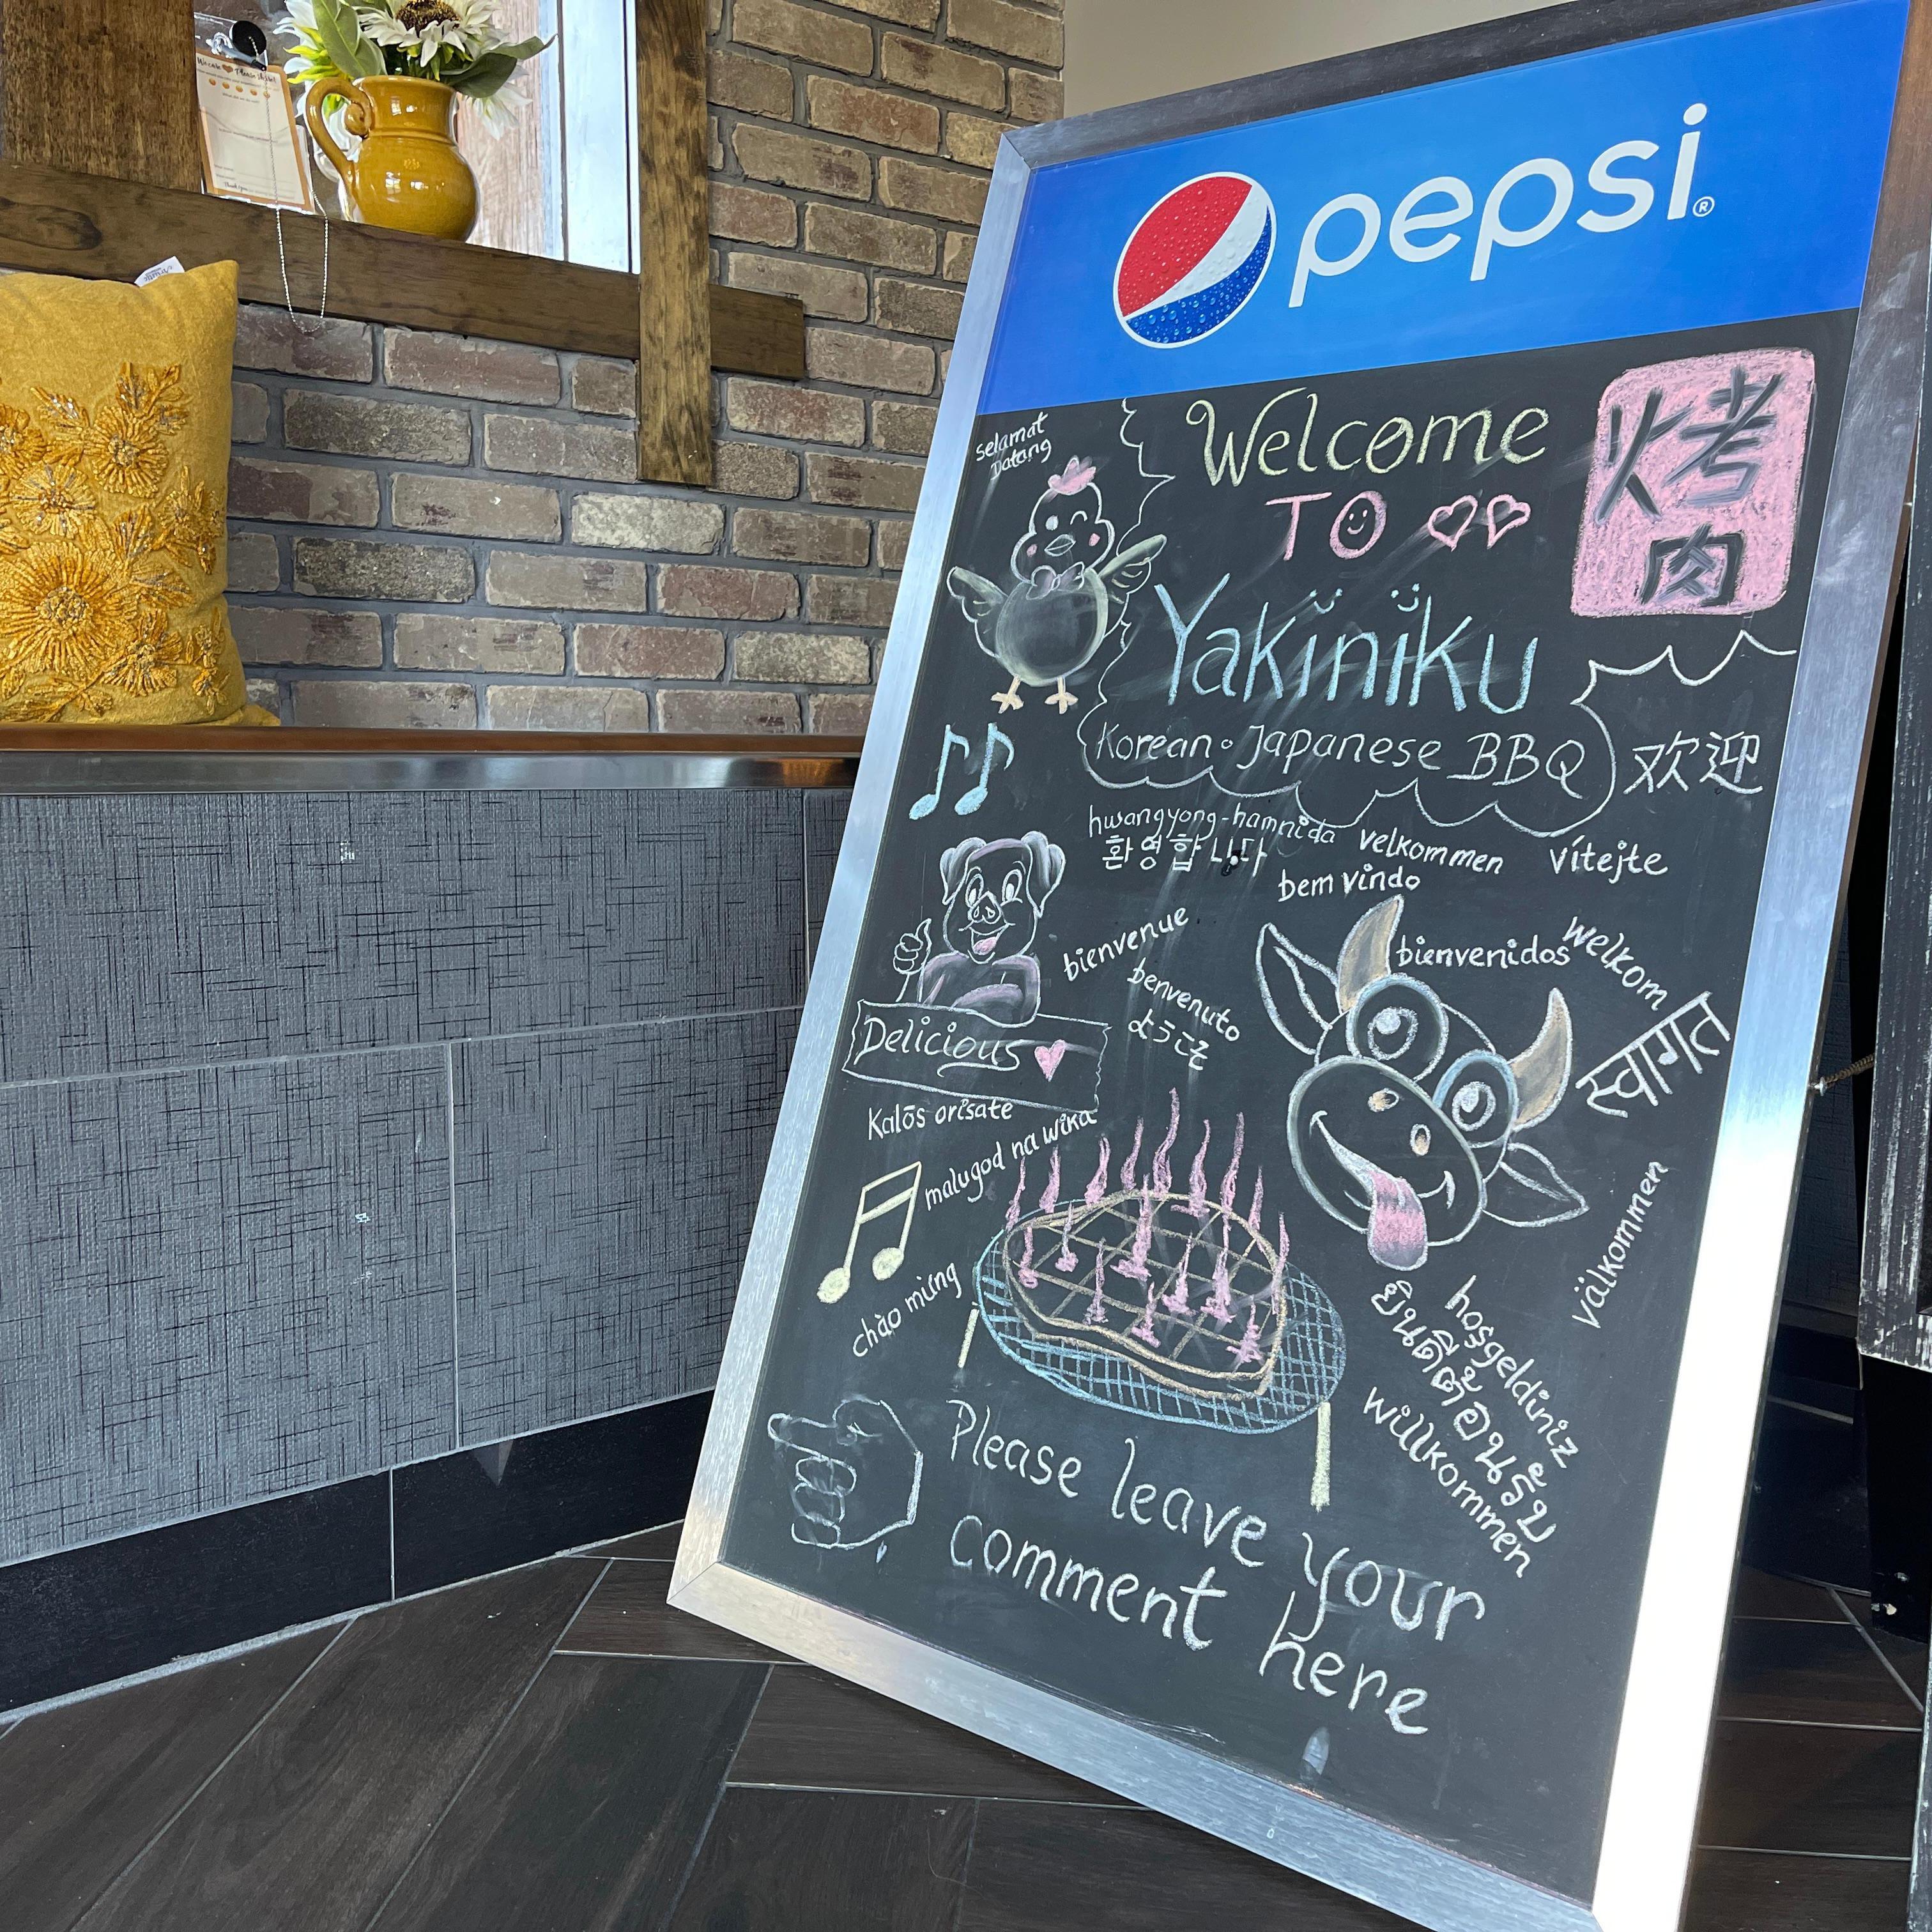 We care Please Write!
Thank you
pepsi®
Selamat
Datang
Welcome
TO
烤
肉
Yakiniku
Korean · Japanese BBQ
欢迎
hwangyong-hamnida
환영합니다
velkommen
vítejte
bem vindo
bienvenue
bienvenidos
welkom
benvenuto
ようこそ
स्वागत
Delicious
Kalōs orisate
malugod na wika
välkommen
chào mừng
hoşgeldiniz
ยินดีต้อนรับ
willkommen
Please leave your
comment here